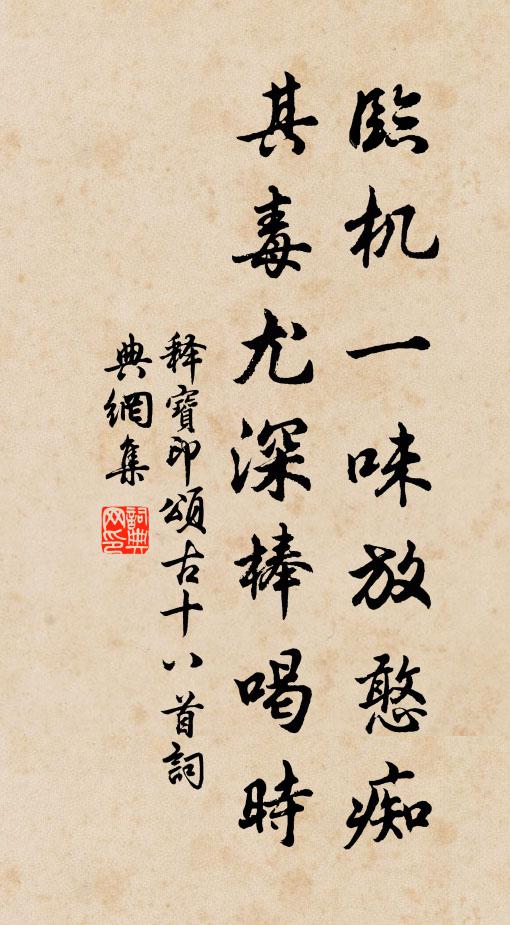 臨机一味放憨痴
其毒尤深棒喝時
釋寶印頌古十八首詞
典網集
詞典网印